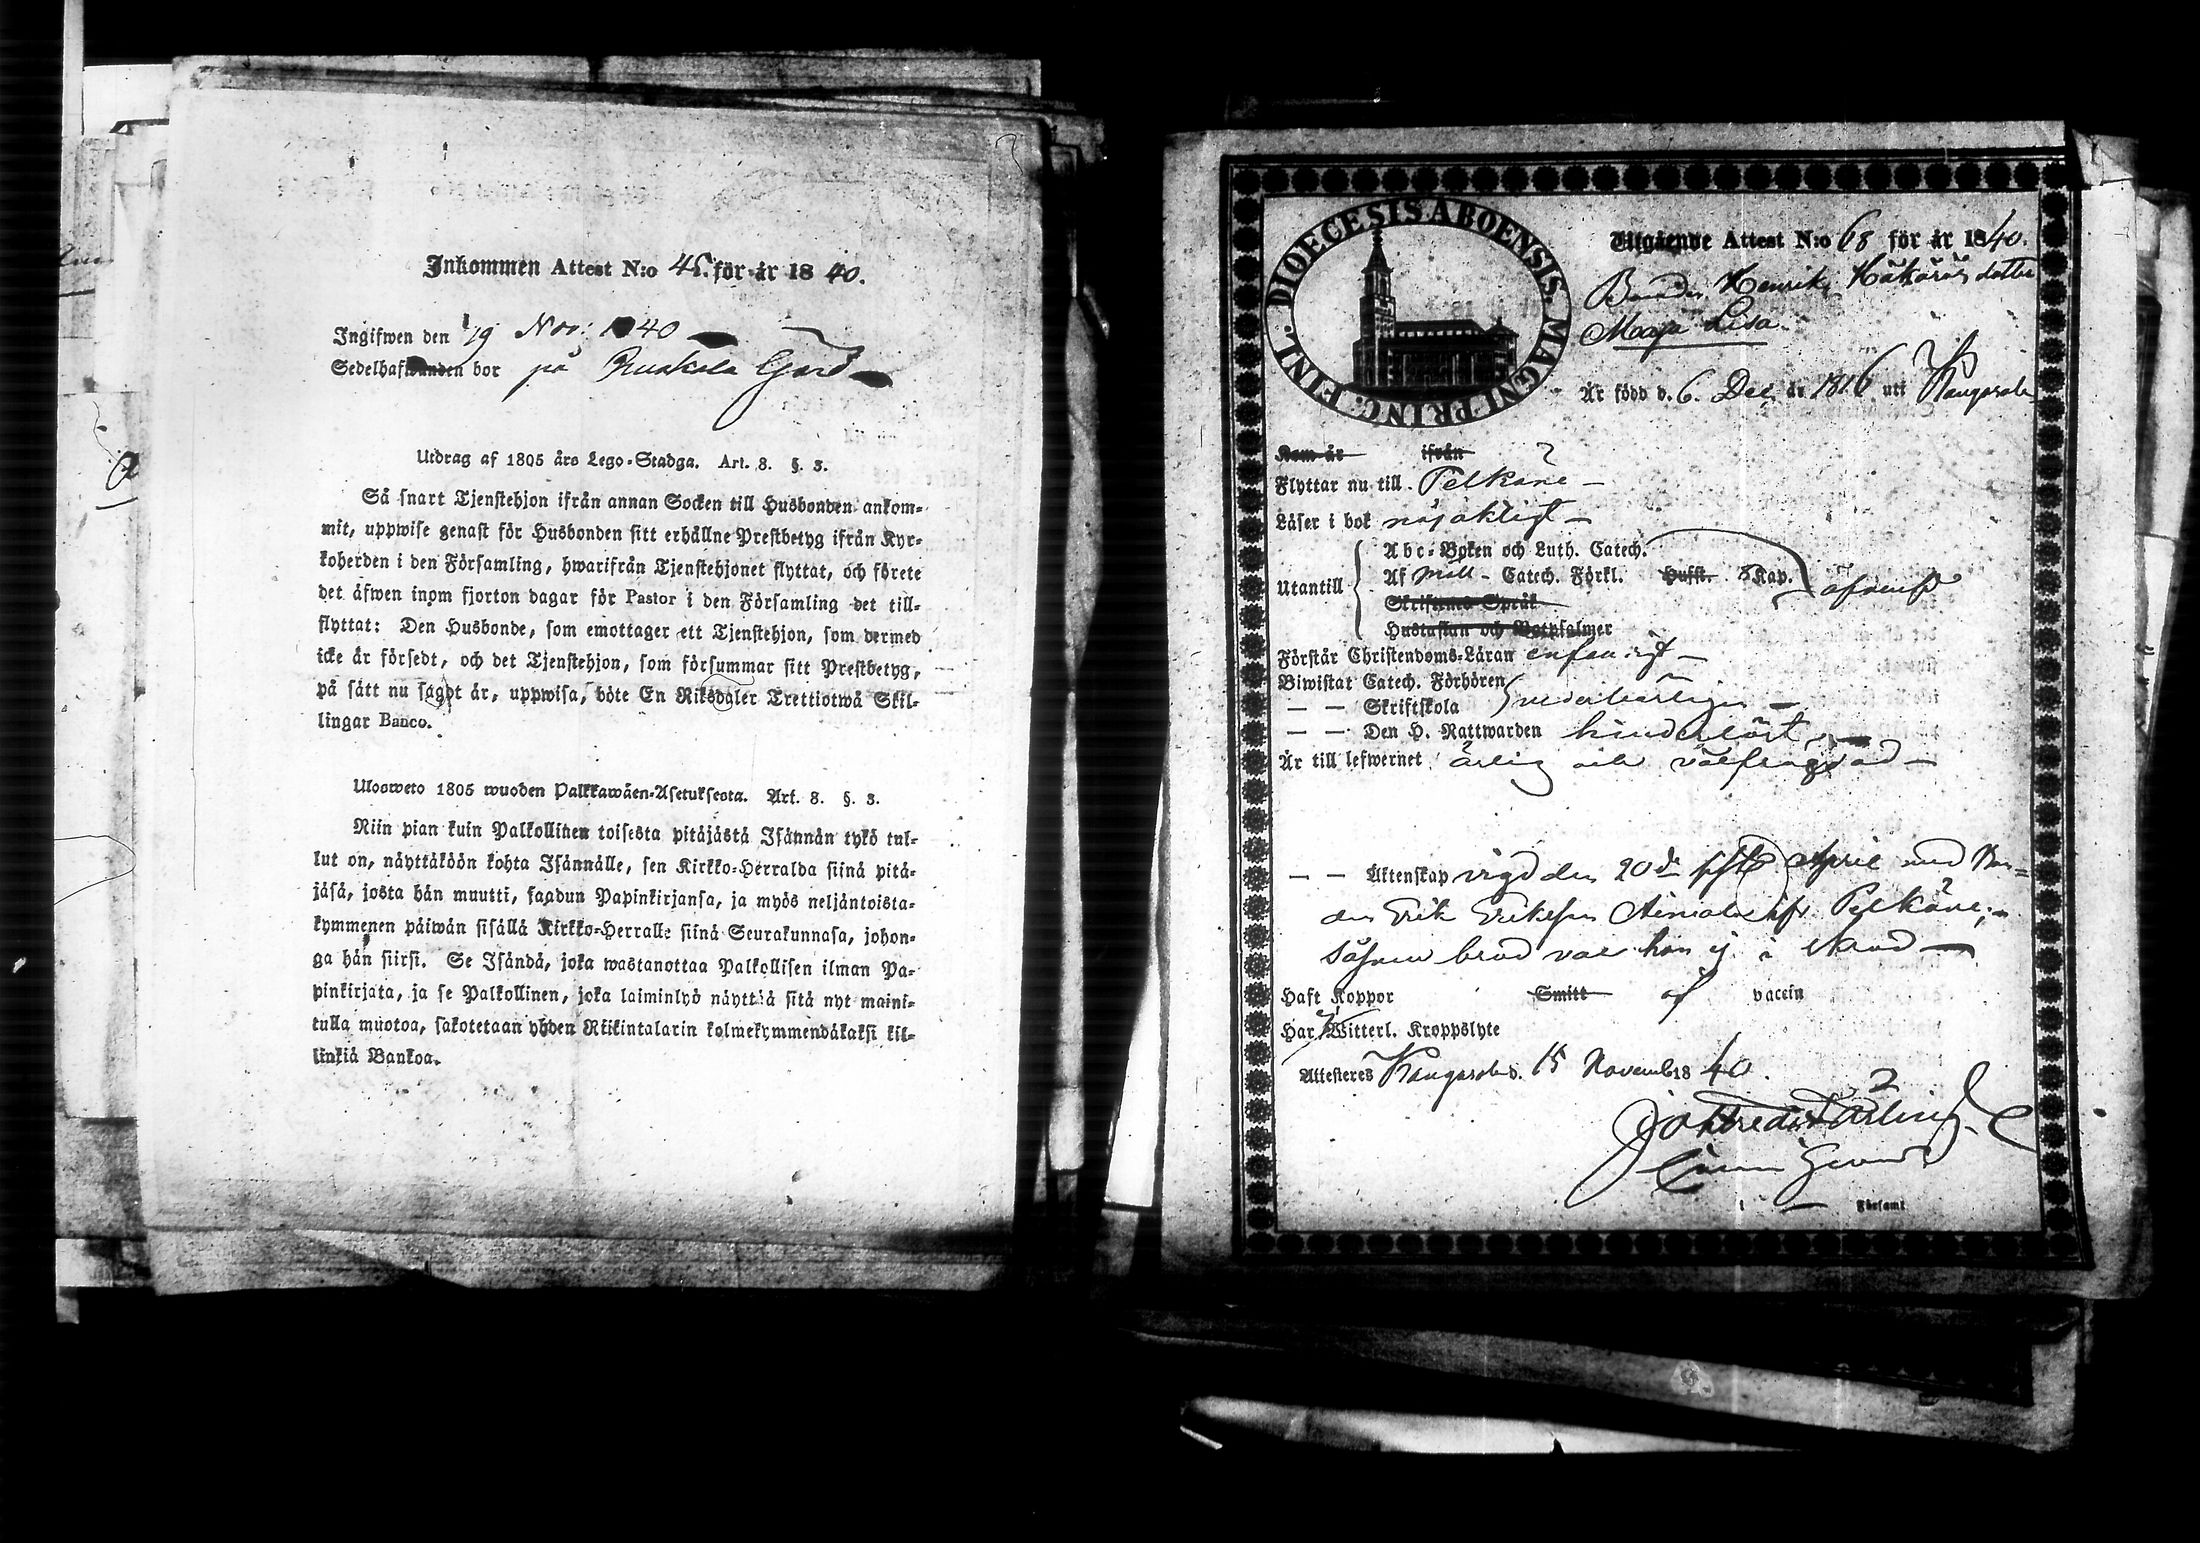 Inkommen Attest N:o 45. för år 1840.
Ingifwen den 19 Nov: 1840
Sedelhafwanden bor på Ruokola Gård
Utdrag af 1805 års Lego-Stadga. Art. 8. §. 3.
Så snart Tjenstehjon ifrån annan Socken till Husbonden ankom-
mit, uppwise genast för Husbonden sitt erhållne Prestbetyg ifrån Kyr-
koherden i den Församling, hwarifrån Tjenstehjonet flyttat, och förete
det äfwen inom fjorton dagar för Pastor i den Församling det till-
flyttat: Den Husbonde, som emottager ett Tjenstehjon, som dermed
icke är försedt, och det Tjenstehjon, som försummar sitt Prestbetyg,
på sätt nu sagdt är, uppwisa, böte En Riksdaler Trettiotwå Skil-
lingar Banco.
Ulosweto 1805 wuoden Palkkawäen-Asetuksesta. Art. 8. §. 3.
Niin pian kuin Palkollinen toisesta pitäjästä Isännän tykö tul-
lut on, näyttäköön kohta Isännälle, sen Kirkko-Herralda siinä pitä-
jäsä, josta hän muutti, saadun Papinkirjansa, ja myös neljäntoista-
kymmenen päiwän sisällä Kirkko-Herralle siinä Seurakunnasa, johon-
ga hän siirsi. Se Isändä, joka wastanottaa Palkollisen ilman Pa-
pinkirjata, ja se Palkollinen, joka laiminlyö näyttää sitä nyt maini-
tulla muotoa, sakotetaan yhden Riikintalarin kolmekymmendäkaksi kil-
linkiä Bankoa.
DIOECESIS ABOENSIS. MAGNI PRINC. FINL.
Utgående Attest N:o 68 för år 1840.
Henrik dotter
Maja Lisa
Är född d. 6. Dec. år 1816 uti Kangasala
Kom år ifrån
Flyttar nu till Pelkäne
Läser i bok nöjaktigt
Abc-Boken och Luth. Catech.
Utantill Af Catech. Förkl. Husst. 8 Kap.
Skriftens Språk
Hustaflan och Botpsalmer
Förstår Christendoms-Läran enfaldigt
Biwistat Catech. Förhören
— — Skriftskola vederbörligen
— — Den H. Nattwarden hinderlöst
Är till lefwernet ärlig och välfrägdad
— — Äktenskap vigd den 20de April med Bon-
den Erik Eriksson ifr. Pelkäne;
såsom brud var hon ej i stånd
Haft Koppor Smitt af vaccin
Har Witterl. Kroppslyte
Attesteres Kangasala d. 15 Novemb 1840.
Församl